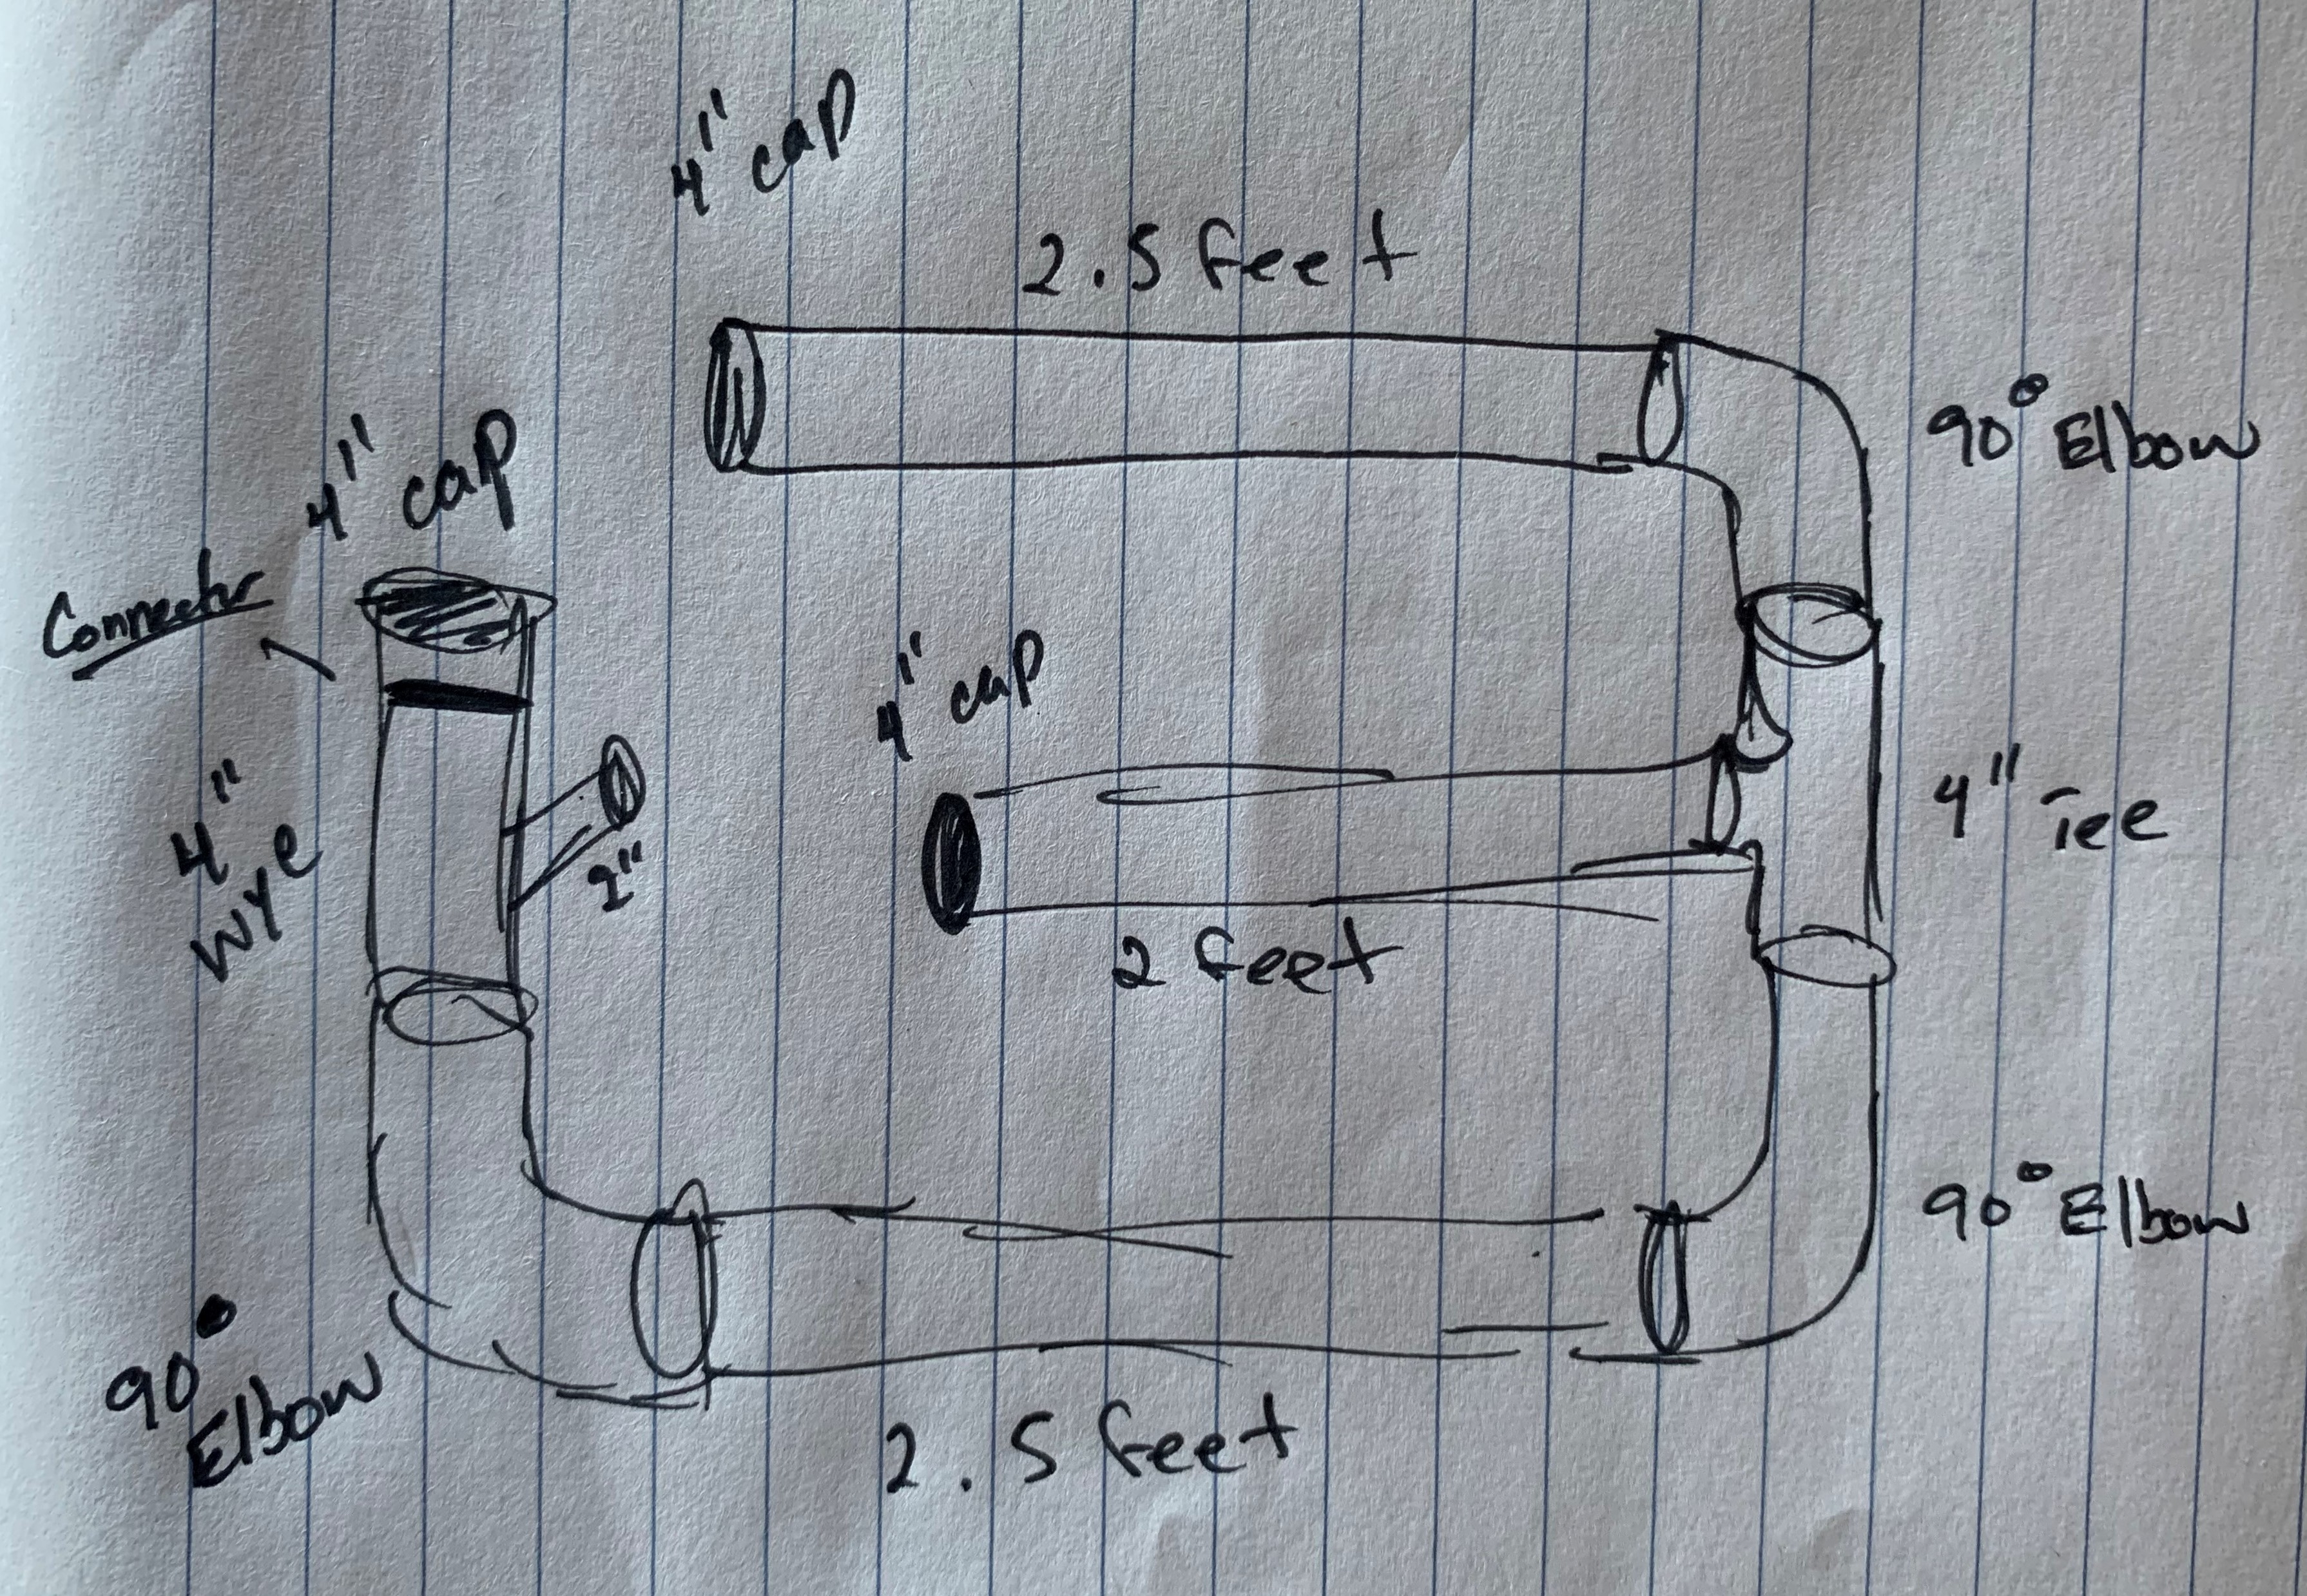 4" cap
2.5 feet
90° Elbow
4" cap
Connector
4" cap
4" Tee
4"
Wye
2"
2 feet
90° Elbow
90°
Elbow
2.5 feet